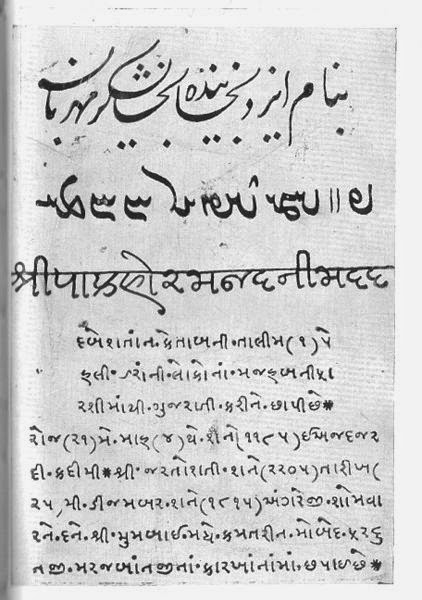 بنام ایزد بخشاینده بخشایشگر مهربان
શ્રીપાક હોરમજદનીમદદ
દબેશતાંન·કેતાબની·તાલીમ(૧)પે
હલી·ઈરાંની·લોકોનાં·મજહબની·ફા
રશીમાંથી·ગુજરાતી·કરીને·છાપીછે*
રોજ(૨૧)મે·માહ(૪)થે·શને(૧૧૮૫)ઈઅજદજર
દી·કદીમી*શ્રી·જરતોશતી·શને(૨૨૦૫)તારીખ(
૨૫,મી·ડીજમબર·શને(૧૮૧૫)અંગરેજી·શોમવા
રને·દને·શ્રી·મુમબાઈ·મધે·કમતરીન·મોબેદ·ફરદુ
નજી·મરજબાંનજીનાં·કારખાંનાંમાં·છપાઈછે*